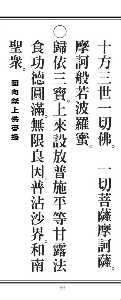 十方三世一切佛。　一切菩薩摩訶薩。
摩訶般若波羅蜜。
○歸依三寶上來設放普施平等甘露法
食功德圓滿。無限良因普沾沙界。和南
聖衆。